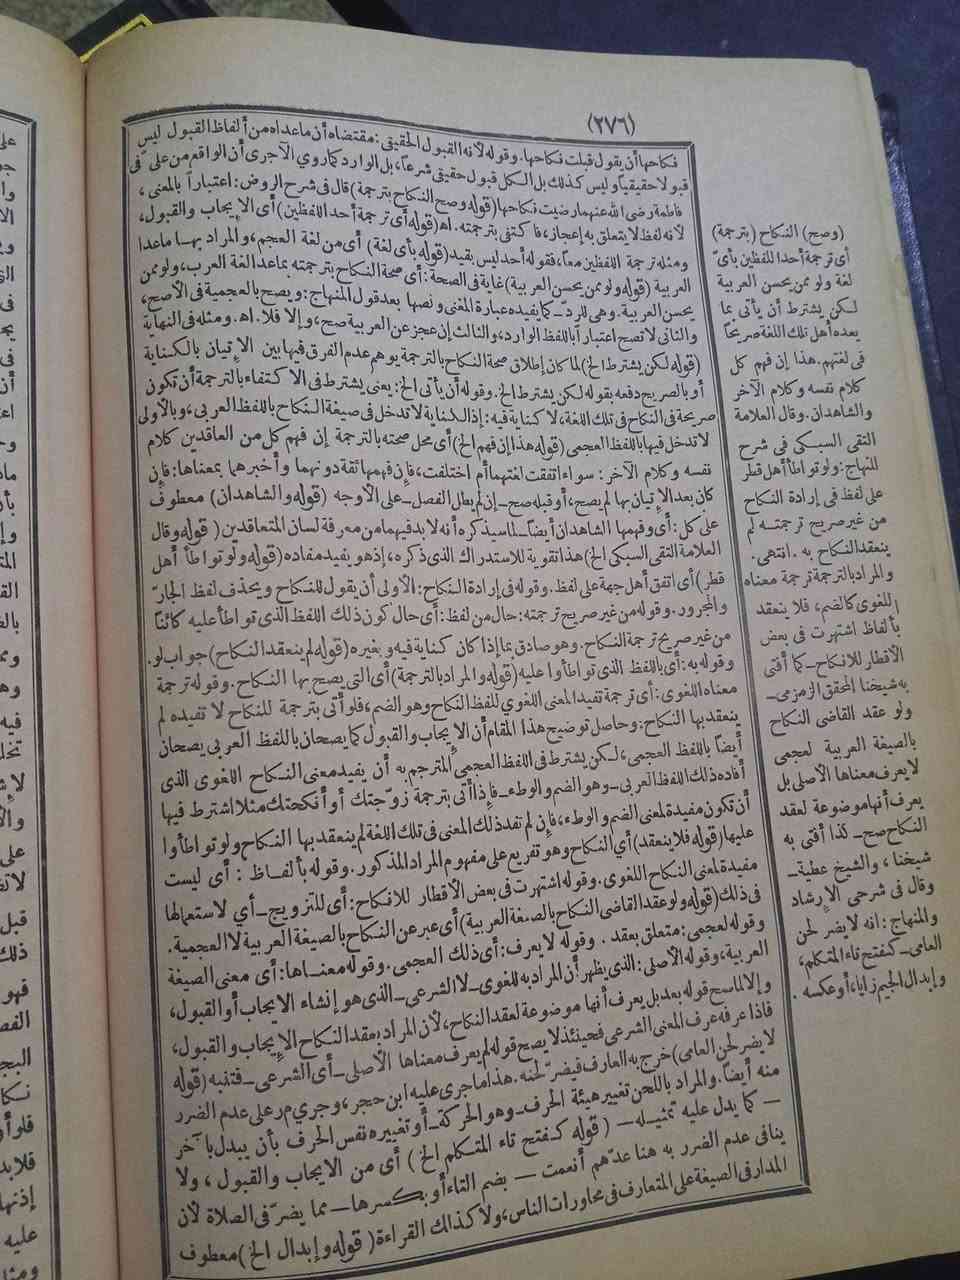 (٢٧٦)
نكاحها أن يقول قبلت نكاحها. وقوله لأنه القبول الحقيقى: مقتضاه أن ماعداه من ألفاظ القبول ليس
قبولا حقيقيا وليس كذلك بل الكل قبول حقيقى شرعا، بل الوارد كما روي الآجرى أن الواقع من على فى
فاطمة رضى الله عنهما رضيت نكاحها (قوله وصح النكاح بترجمة) قال فى شرح الروض: اعتبارا بالمعنى،
لأنه لفظ لا يتعلق به إعجاز، فاكتفى بترجمته. اه (قوله أى ترجمة أحد اللفظين) أى الإيجاب والقبول،
ومثله ترجمة اللفظين معا، فقوله أحد ليس بقيد (قوله بأى لغة) أى من لغة العجم، والمراد بها ماعدا
العربية (قوله ولو ممن يحسن العربية) غاية فى الصحة: أى صحة النكاح بترجمته بماعد الغة العرب، ولو ممن
يحسن العربية. وهى للرد ــ كما يفيده عبارة المغنى ونصها بعد قول المنهاج: ويصح بالعجمية فى الأصح،
والثانى لا تصح اعتبارا باللفظ الوارد، والثالث إن عجز عن العربية صح، وإلا فلا. اه. ومثله فى النهاية
(قوله لكن يشترط الخ) لما كان إطلاق صحة النكاح بالترجمة يوهم عدم الفرق فيها بين الإتيان بالكناية
أو بالصريح دفعه بقوله لكن يشترط الخ. وقوله أن يأتى الخ: يعنى يشترط فى الاكتفاء بالترجمة أن تكون
صريحة فى النكاح فى تلك اللغة، لا كناية فيه: إذ الكناية لا تدخل فى صيغة النكاح باللفظ العربى، وبالأولى
لا تدخل فيها باللفظ العجمى (قوله هذا إن فهم الخ) أى محل صحته بالترجمة إن فهم كل من العاقدين كلام
نفسه وكلام الآخر: سواء اتفقت لغتهما أم اختلفت، فإن فهمها ثقة دونهما وأخبرهما بمعناها: فإن
كان بعد الإتيان بها لم يصح، أو قبله صح ــ إن لم يطل الفصل ــ على الأوجه (قوله والشاهدان) معطوف
على كل: أى وفهمها الشاهدان أيضا ــ لما سيذكره أنه لا بد فيهما من معرفة لسان المتعاقدين (قوله وقال
العلامة التقى السبكى الخ) هذا تقوية للاستدراك الذى ذكره، إذ هو يفيد مفاده (قوله ولو تواطأ أهل
قطر) أى اتفق أهل جهة على لفظ. وقوله فى إرادة النكاح: الأولى أن يقول للنكاح ويحذف لفظ الجار
والمجرور. وقوله من غير صريح ترجمته: حال من لفظ: أى حال كون ذلك اللفظ الذى تواطأ عليه كائنا
من غير صريح ترجمة النكاح. وهو صادق بما إذا كان كناية فيه وبغيره (قوله لم ينعقد النكاح) جواب لو.
وقوله به: أى باللفظ الذى تواطأوا عليه (قوله والمراد بالترجمة) أى التى يصح بها النكاح. وقوله ترجمة
معناه اللغوى: أى ترجمة تفيد المعنى اللغوي للفظ النكاح وهو الضم، فلو أتى بترجمة للنكاح لا تفيده لم
ينعقد بها النكاح: وحاصل توضيح هذا المقام أن الإيجاب والقبول كما يصحان باللفظ العربى يصحان
أيضا باللفظ العجمى، لكن يشترط فى اللفظ العجمى المترجم به أن يفيد معنى النكاح اللغوى الذى
أفاده ذلك اللفظ العربى ــ وهو الضم والوطء ــ فإذا أتى بترجمة زوّجتك أو أنكحتك مثلا اشترط فيها
أن تكون مفيدة لمعنى الضم والوطء، فإن لم تفد ذلك المعنى فى تلك اللغة لم ينعقد بها النكاح ولو تواطأوا
عليها (قوله فلا ينعقد) أي النكاح وهو تفريع على مفهوم المراد المذكور. وقوله بألفاظ: أى ليست
مفيدة لمعنى النكاح اللغوى. وقوله اشتهرت فى بعض الأقطار للانكاح: أى للتزويج ــ أي لاستعمالها
فى ذلك (قوله ولو عقد القاضى النكاح بالصيغة العربية) أى عبر عن النكاح بالصيغة العربية لا العجمية.
وقوله لعجمى: متعلق بعقد. وقوله لا يعرف: أى ذلك العجمى. وقوله معناها: أى معنى الصيغة
العربية، وقوله الأصلى: الذى يظهر أن المراد به اللغوى ــ لا الشرعى ــ الذى هو إنشاء الايجاب أو القبول،
وإلا لما صح قوله بعد بل يعرف أنها موضوعة لعقد النكاح، لأن المراد بعقد النكاح الإيجاب والقبول،
فاذا عرفه عرف المعنى الشرعى فحينئذ لا يصح قوله لم يعرف معناها الأصلى ــ أى الشرعى ــ فتنبه (قوله
لا يضر لحن العامى) خرج به العارف فيضر لحنه. هذا ماجرى عليه ابن حجر، وجري مر على عدم الضرر
منه أيضا. والمراد باللحن تغيير هيئة الحرف ــ وهو الحركة ــ أو تغييره نفس الحرف بأن يبدل بآخر
ــ كما يدل عليه تمثيله ــ (قوله كفتح تاء المتكلم الخ) أى من الايجاب والقبول، ولا
ينافى عدم الضرر به هنا عدهم أنعمت ــ بضم التاء أو بكسرها ــ مما يضر فى الصلاة لأن
المدار فى الصيغة على المتعارف فى محاورات الناس، ولا كذلك القراءة (قوله وإبدال الخ) معطوف
(وصح) النكاح (بترجمة)
أى ترجمة أحد اللفظين بأى
لغة ولو ممن يحسن العربية
لكن يشترط أن يأتى بما
يعده أهل تلك اللغة صريحا
فى لغتهم. هذا إن فهم كل
كلام نفسه وكلام الآخر
والشاهدان. وقال العلامة
التقى السبكى فى شرح
المنهاج: ولو تواطأ أهل قطر
على لفظ فى إرادة النكاح
من غير صريح ترجمته لم
ينعقد النكاح به. انتهى.
والمراد بالترجمة ترجمة معناه
اللغوى كالضم، فلا ينعقد
بألفاظ اشتهرت فى بعض
الأقطار للانكاح ــ كما أفتى
به شيخنا المحقق الزمزمى ــ
ولو عقد القاضى النكاح
بالصيغة العربية لعجمى
لا يعرف معناها الأصلى بل
يعرف أنها موضوعة لعقد
النكاح صح ــ كذا أفتى به
شيخنا، والشيخ عطية ــ
وقال فى شرحى الإرشاد
والمنهاج: انه لا يضر لحن
العامى ــ كفتح تاء المتكلم،
وإبدال الجيم زايا، أو عكسه.